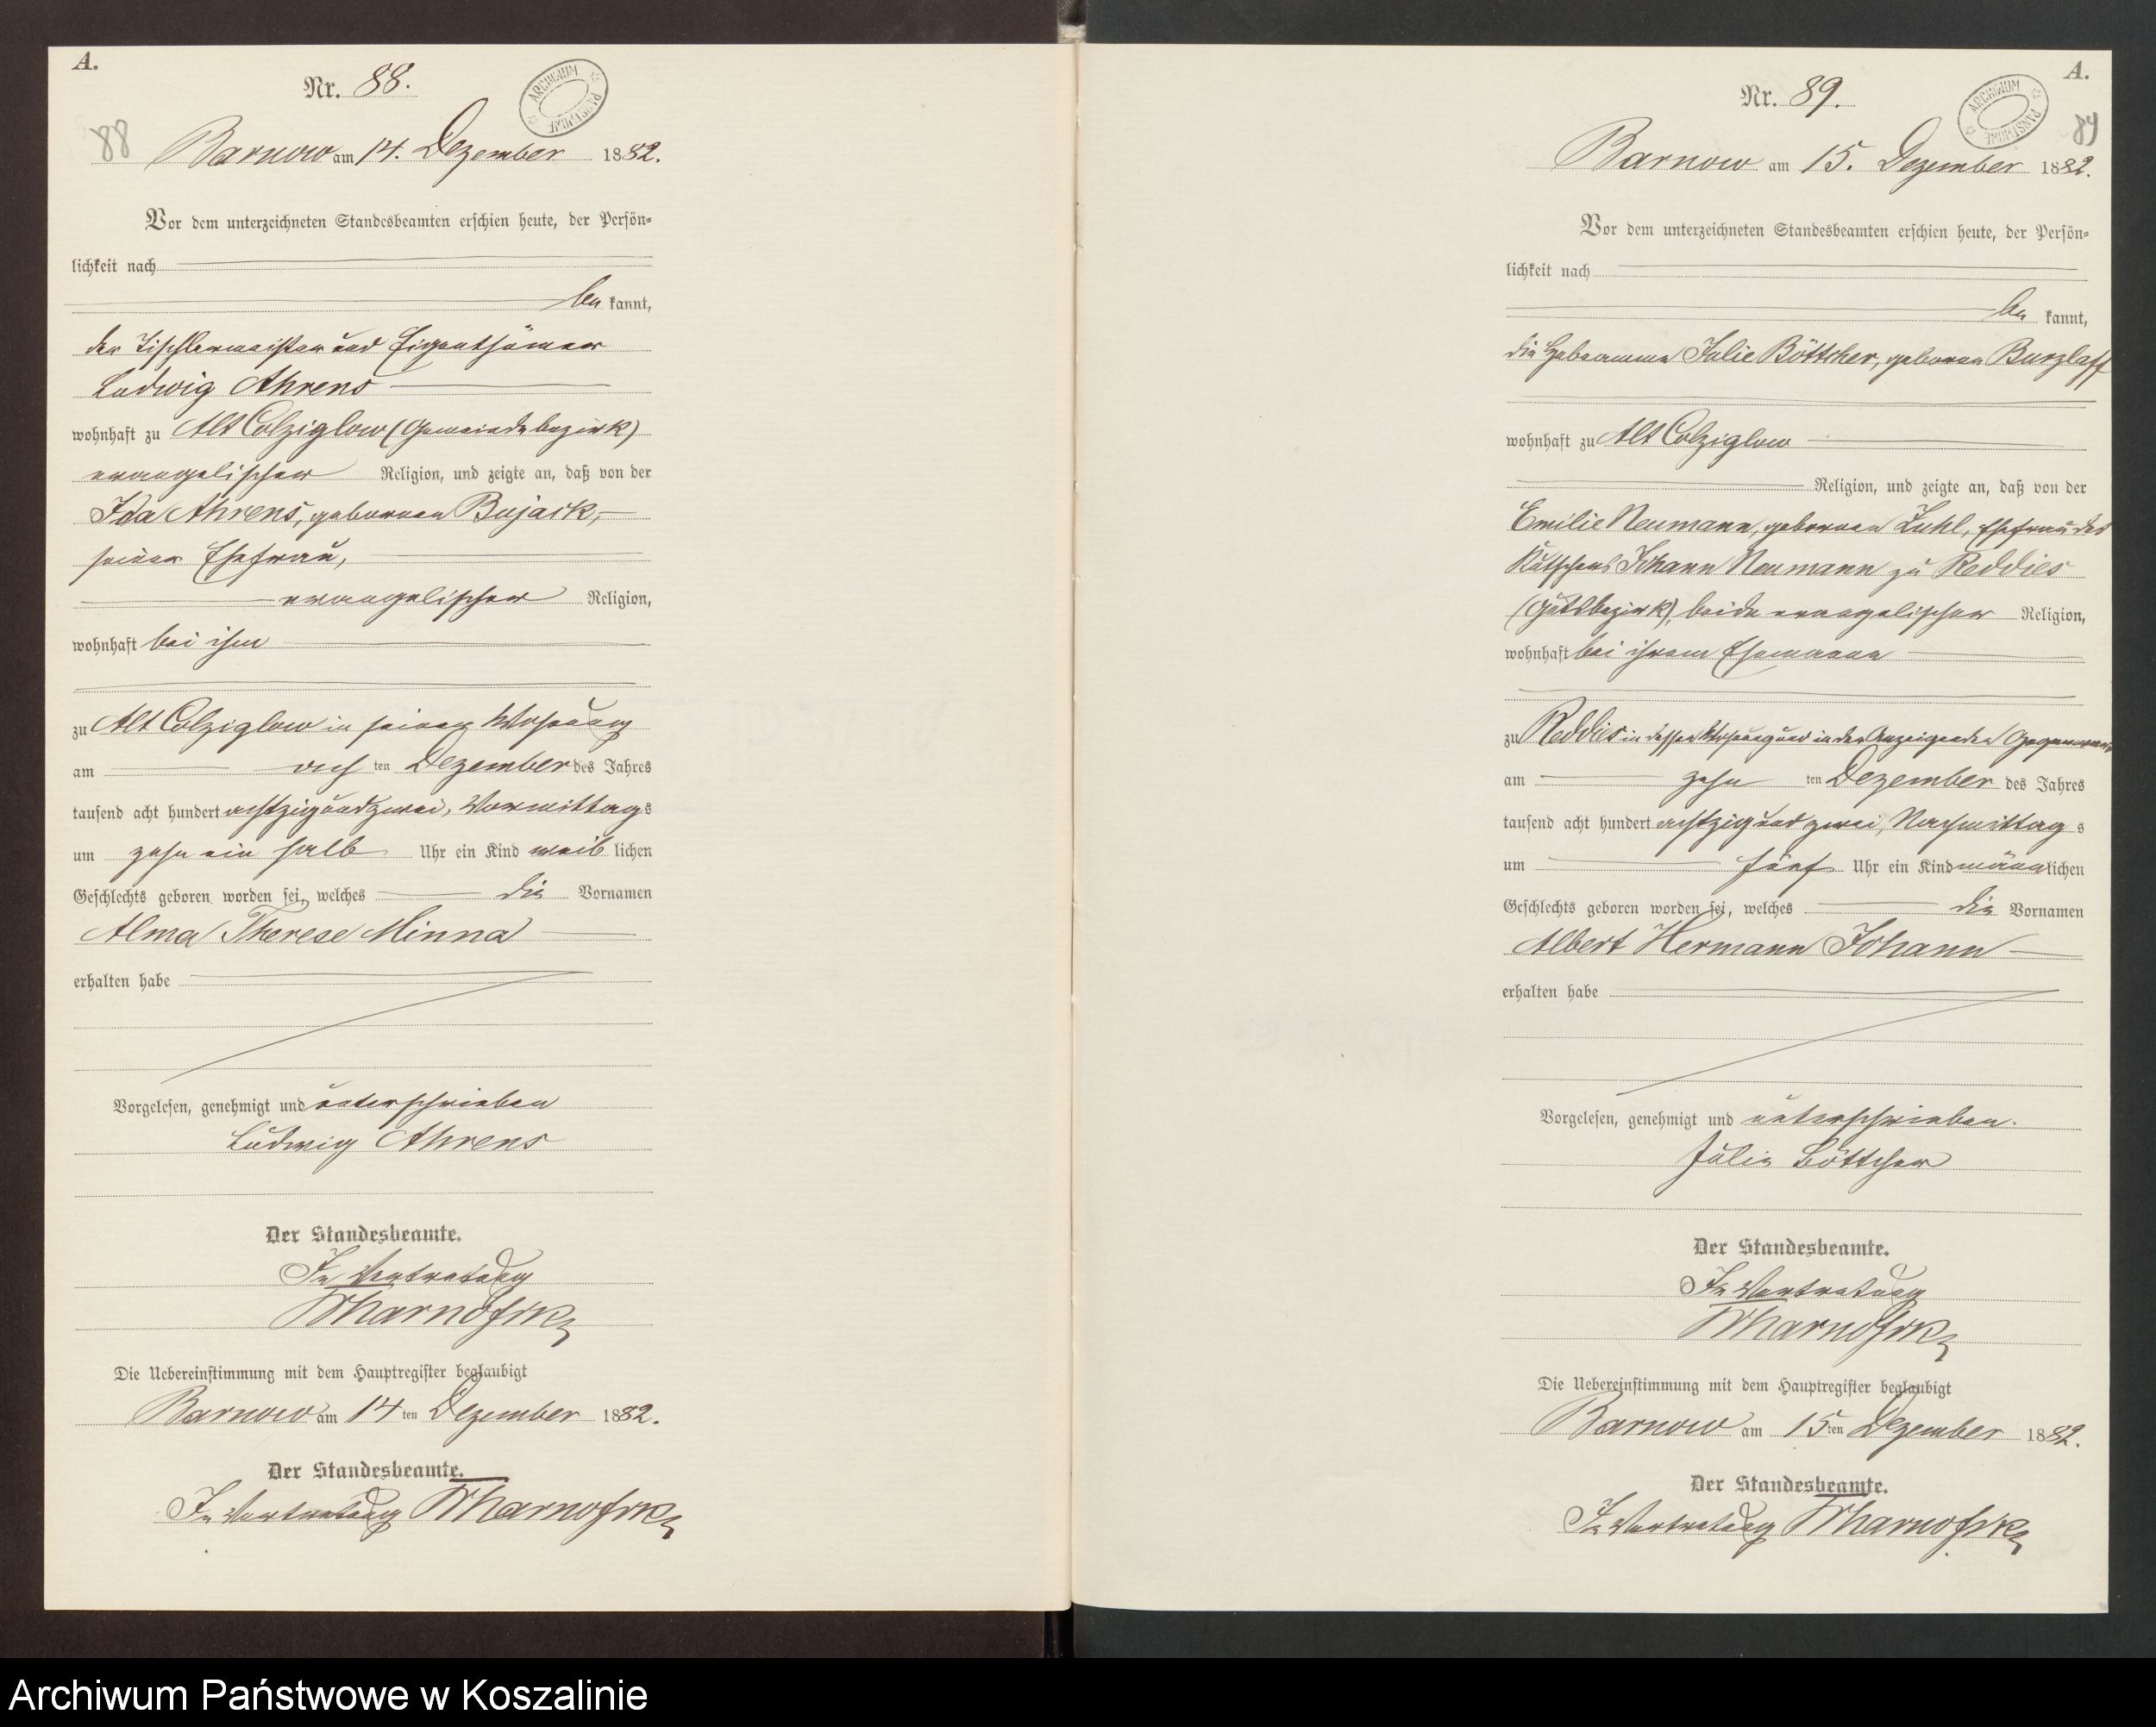 A.
Nr. 88.
ARCHIWUM PAŃSTWOWE
88
Barnow am 14. Dezember 1882.
Vor dem unterzeichneten Standesbeamten erschien heute, der Persön-
lichkeit nach
be kannt,
der Tischlermeister und Eigenthümer
Ludwig Ahrens
wohnhaft zu Alt Colziglow (Gemeindebezirk)
evangelischer Religion, und zeigte an, daß von der
Ida Ahrens, geborenen Bujack,
seiner Ehefrau,
evangelischer Religion,
wohnhaft bei ihm
zu Alt Colziglow in seiner Wohnung
am ach ten Dezember des Jahres
tausend acht hundert achtzig und zwei, Vormittags
um zehn ein halb Uhr ein Kind weib lichen
Geschlechts geboren worden sei, welches die Vornamen
Alma Therese Minna
erhalten habe
Vorgelesen, genehmigt und unterschrieben
Ludwig Ahrens
Der Standesbeamte.
In Vertretung
Die Uebereinstimmung mit dem Hauptregister beglaubigt
Barnow am 14 ten Dezember 1882.
Der Standesbeamte.
In Vertretung
A.
Nr. 89.
ARCHIWUM PAŃSTWOWE
89
Barnow am 15. Dezember 1882.
Vor dem unterzeichneten Standesbeamten erschien heute, der Persön-
lichkeit nach
be kannt,
die Hebeamme Julie Böttcher, geborene Burzlaff
wohnhaft zu Alt Colziglow
Religion, und zeigte an, daß von der
Emilie Neumann, geborenen Kuhl, Ehefrau des
Kutschers Johann Neumann zu Reddies
(Gutsbezirk), beide evangelischer Religion,
wohnhaft bei ihrem Ehemanne
zu Reddies in dessen Wohnung und in der Anzeigenden Gegenwart
am zehn ten Dezember des Jahres
tausend acht hundert achtzig und zwei, Nachmittag s
um fünf Uhr ein Kind männlichen
Geschlechts geboren worden sei, welches die Vornamen
Albert Hermann Johann
erhalten habe
Vorgelesen, genehmigt und unterschrieben.
Julie Böttcher
Der Standesbeamte.
In Vertretung
Die Uebereinstimmung mit dem Hauptregister beglaubigt
Barnow am 15 ten Dezember 1882.
Der Standesbeamte.
In Vertretung
Archiwum Państwowe w Koszalinie